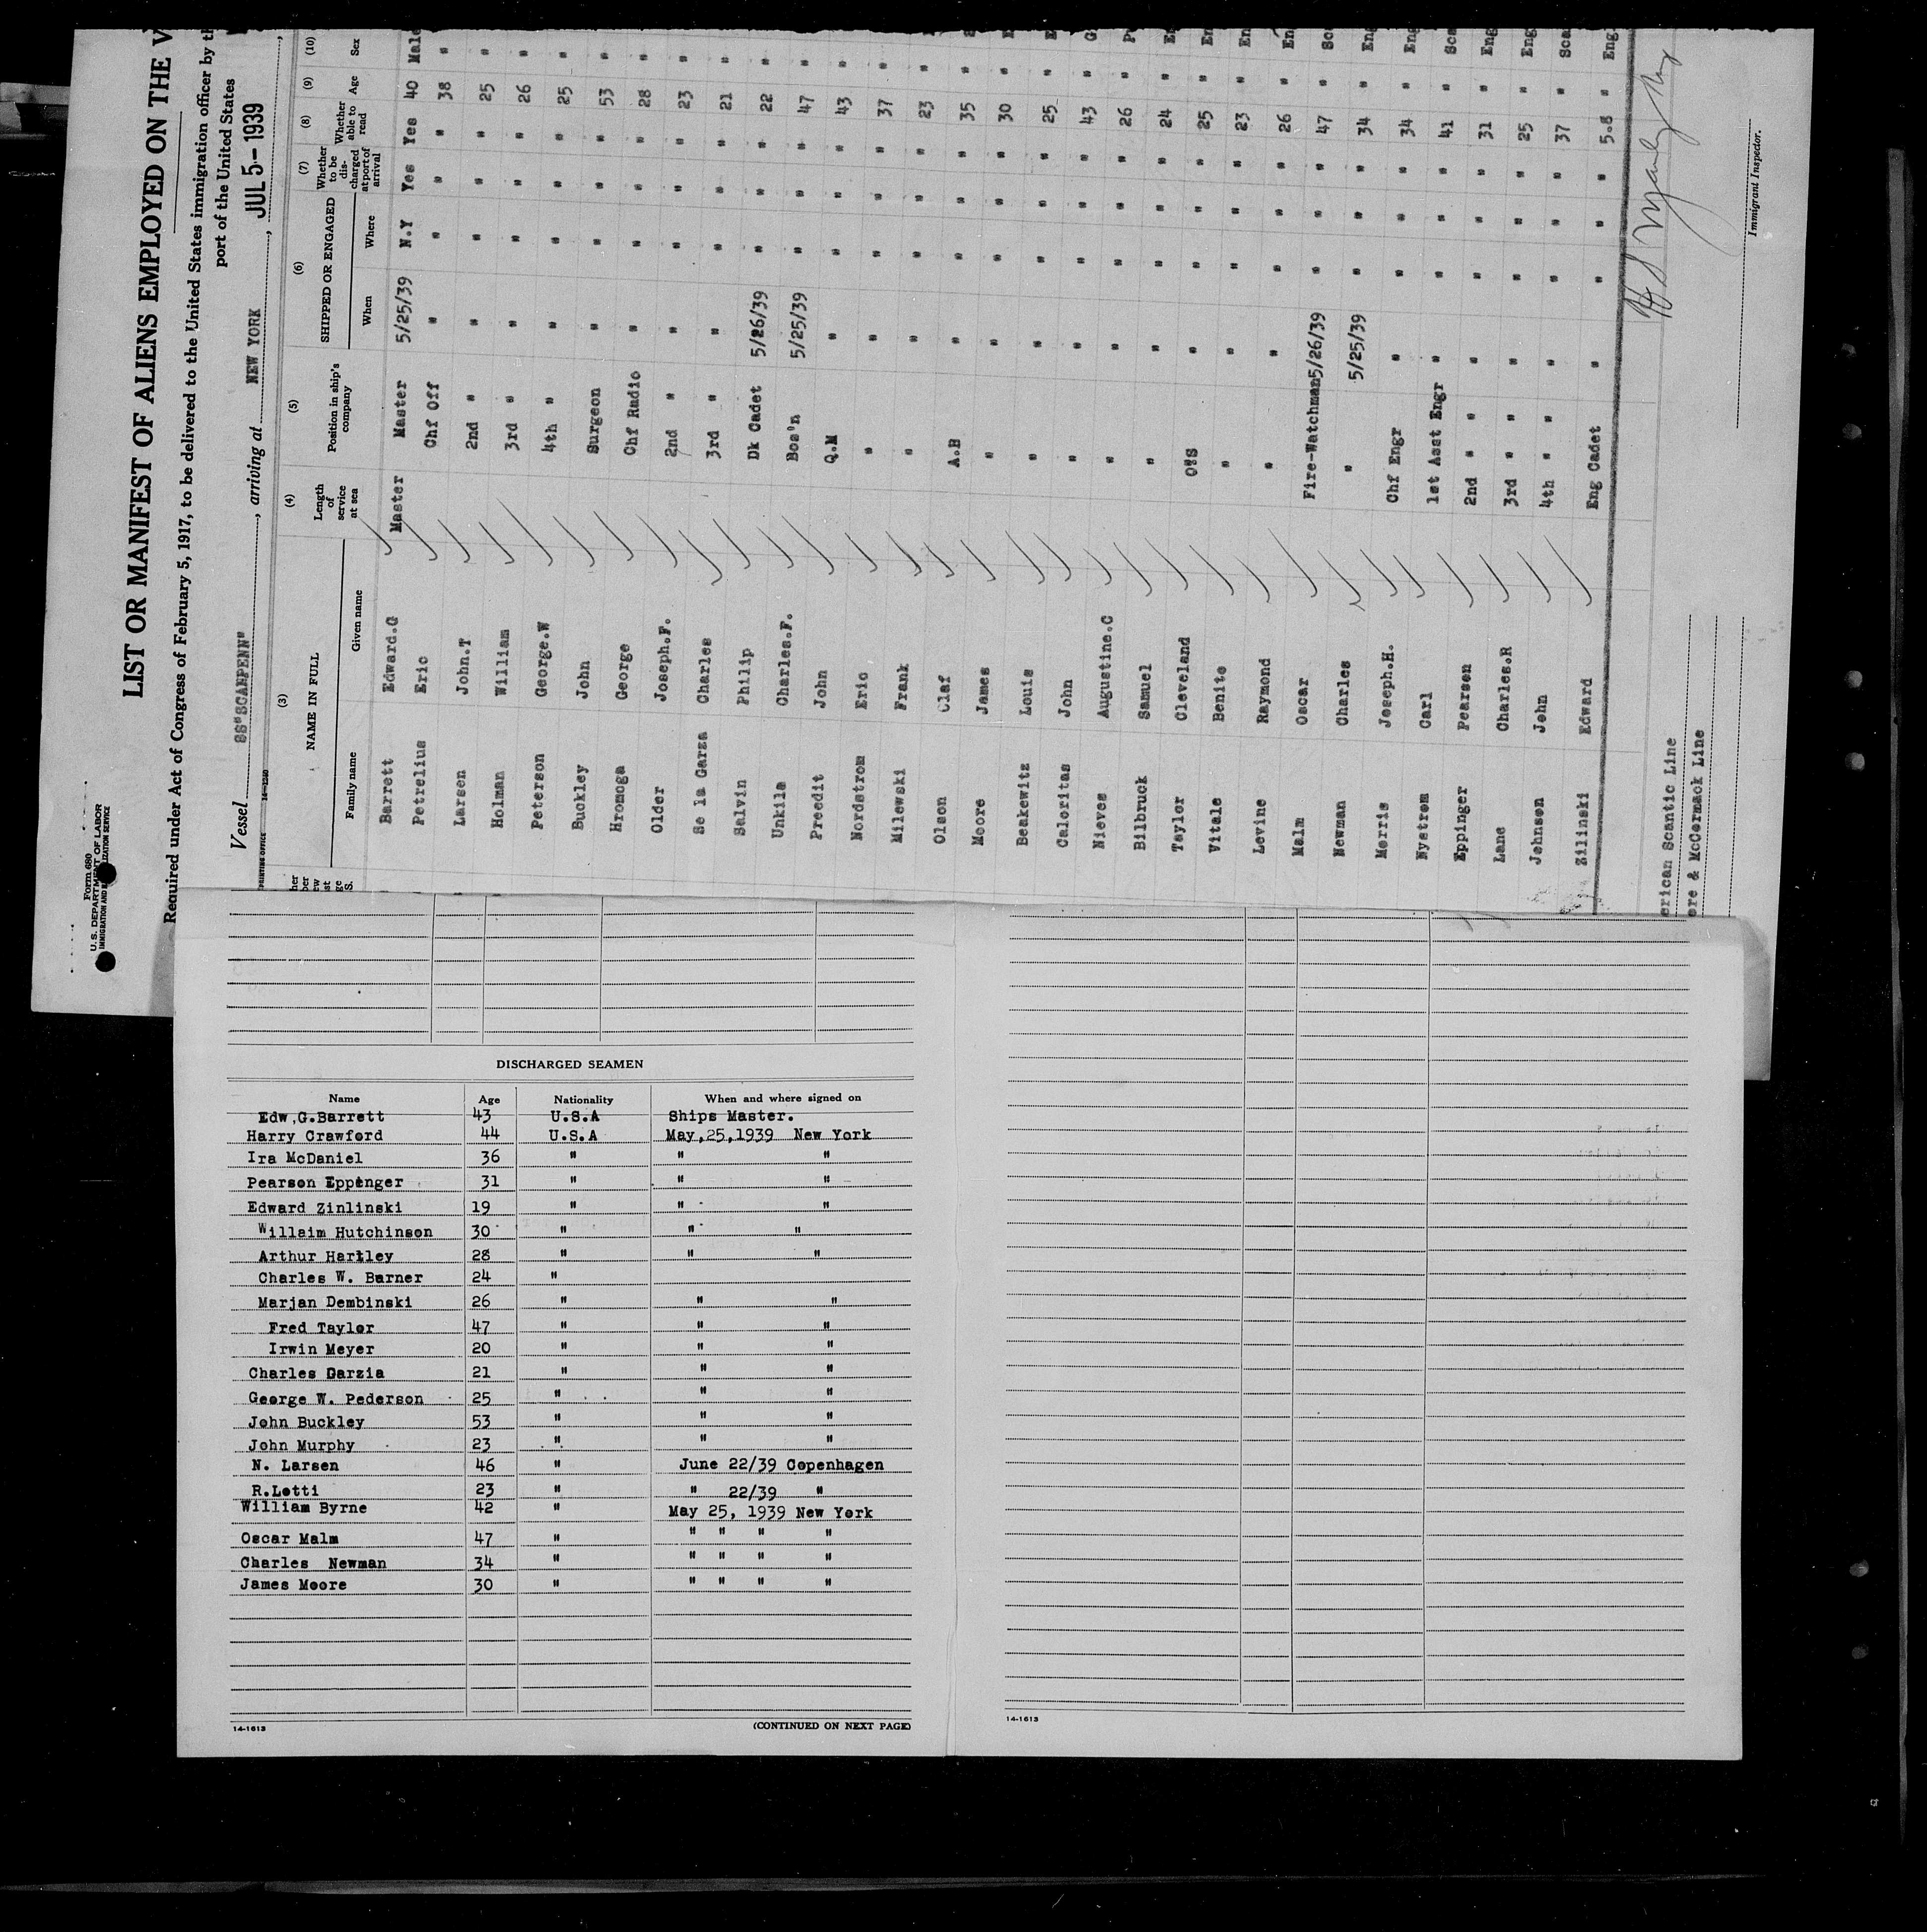 Form 680
U. S. DEPARTMENT OF LABOR
LIST OR MANIFEST OF ALIENS EMPLOYED ON THE V
Required under Act of Congress of February 5, 1917, to be delivered to the United States immigration officer by th
port of the United States
Vessel SS"SCANPENN", arriving at NEW YORK, JUL 5-1939,
(3) (4) (5) (6) (7) (8) (9) (10)
NAME IN FULL Length of service at sea Position in ship's company SHIPPED OR ENGAGED Whether to be discharged at port of arrival Whether able to read Age Sex
Family name Given name When Where
Barrett Edward.G Master Master 5/25/39 N.Y Yes Yes 40 Male
Petrelius Eric Chf Off " " " " 38 "
Larsen John.T 2nd " " " " " 25 "
Holman William 3rd " " " " " 26 "
Peterson George.W 4th " " " " " 25 "
Buckley John Surgeon " " " " 53 "
Hromoga George Chf Radio " " " " 28 "
Older Joseph.F. 2nd " " " " " 23 "
Se la Garza Charles 3rd " " " " " 21 "
Salvin Philip Dk Cadet 5/26/39 " " " 22 "
Unkila Charles.F. Bos'n 5/25/39 " " " 47 "
Preedit John Q.M " " " " 43 "
Nordstrom Eric " " " " " 37 "
Milewski Frank " " " " " 23 "
Olson Olaf A.B " " " " 35 "
Moore James " " " " " 30 "
Beakewitz Louis " " " " " 25 "
Caloritas John " " " " " 43 "
Nieves Augustine.C " " " " " 26 "
Bilbruck Samuel " " " " " 24 "
Taylor Cleveland O.S " " " " 25 "
Vitale Benito " " " " " 23 "
Levine Raymond " " " " " 26 "
Malm Oscar Fire-Watchman 5/26/39 " " " 47 "
Newman Charles " 5/25/39 " " " 34 "
Morris Joseph.H. Chf Engr " " " " 34 "
Nystrom Carl 1st Asst Engr " " " " 41 "
Eppinger Pearson 2nd " " " " " " 31 "
Lane Charles.R 3rd " " " " " " 25 "
Johnson John 4th " " " " " " 37 "
Zilinski Edward Eng Cadet " " " " 5.8 "
erican Scantic Line
ore & McCormack Line
Immigrant Inspector.
DISCHARGED SEAMEN
Name Age Nationality When and where signed on
Edw,G.Barrett 43 U.S.A Ships Master.
Harry Crawford 44 U.S.A May,25,1939 New York
Ira McDaniel 36 " " "
Pearson Eppenger 31 " " "
Edward Zinlinski 19 " " "
Willaim Hutchinson 30 " " "
Arthur Hartley 28 " " "
Charles W. Barner 24 "
Marjan Dembinski 26 " " "
Fred Taylor 47 " " "
Irwin Meyer 20 " " "
Charles Garzia 21 " " "
George W. Pederson 25 " " "
John Buckley 53 " " "
John Murphy 23 " " "
N. Larsen 46 " June 22/39 Copenhagen
R.Lotti 23 " " 22/39 "
William Byrne 42 " May 25, 1939 New York
Oscar Malm 47 " " " " "
Charles Newman 34 " " " " "
James Moore 30 " " " " "
14-1613
(CONTINUED ON NEXT PAGE)
14-1613